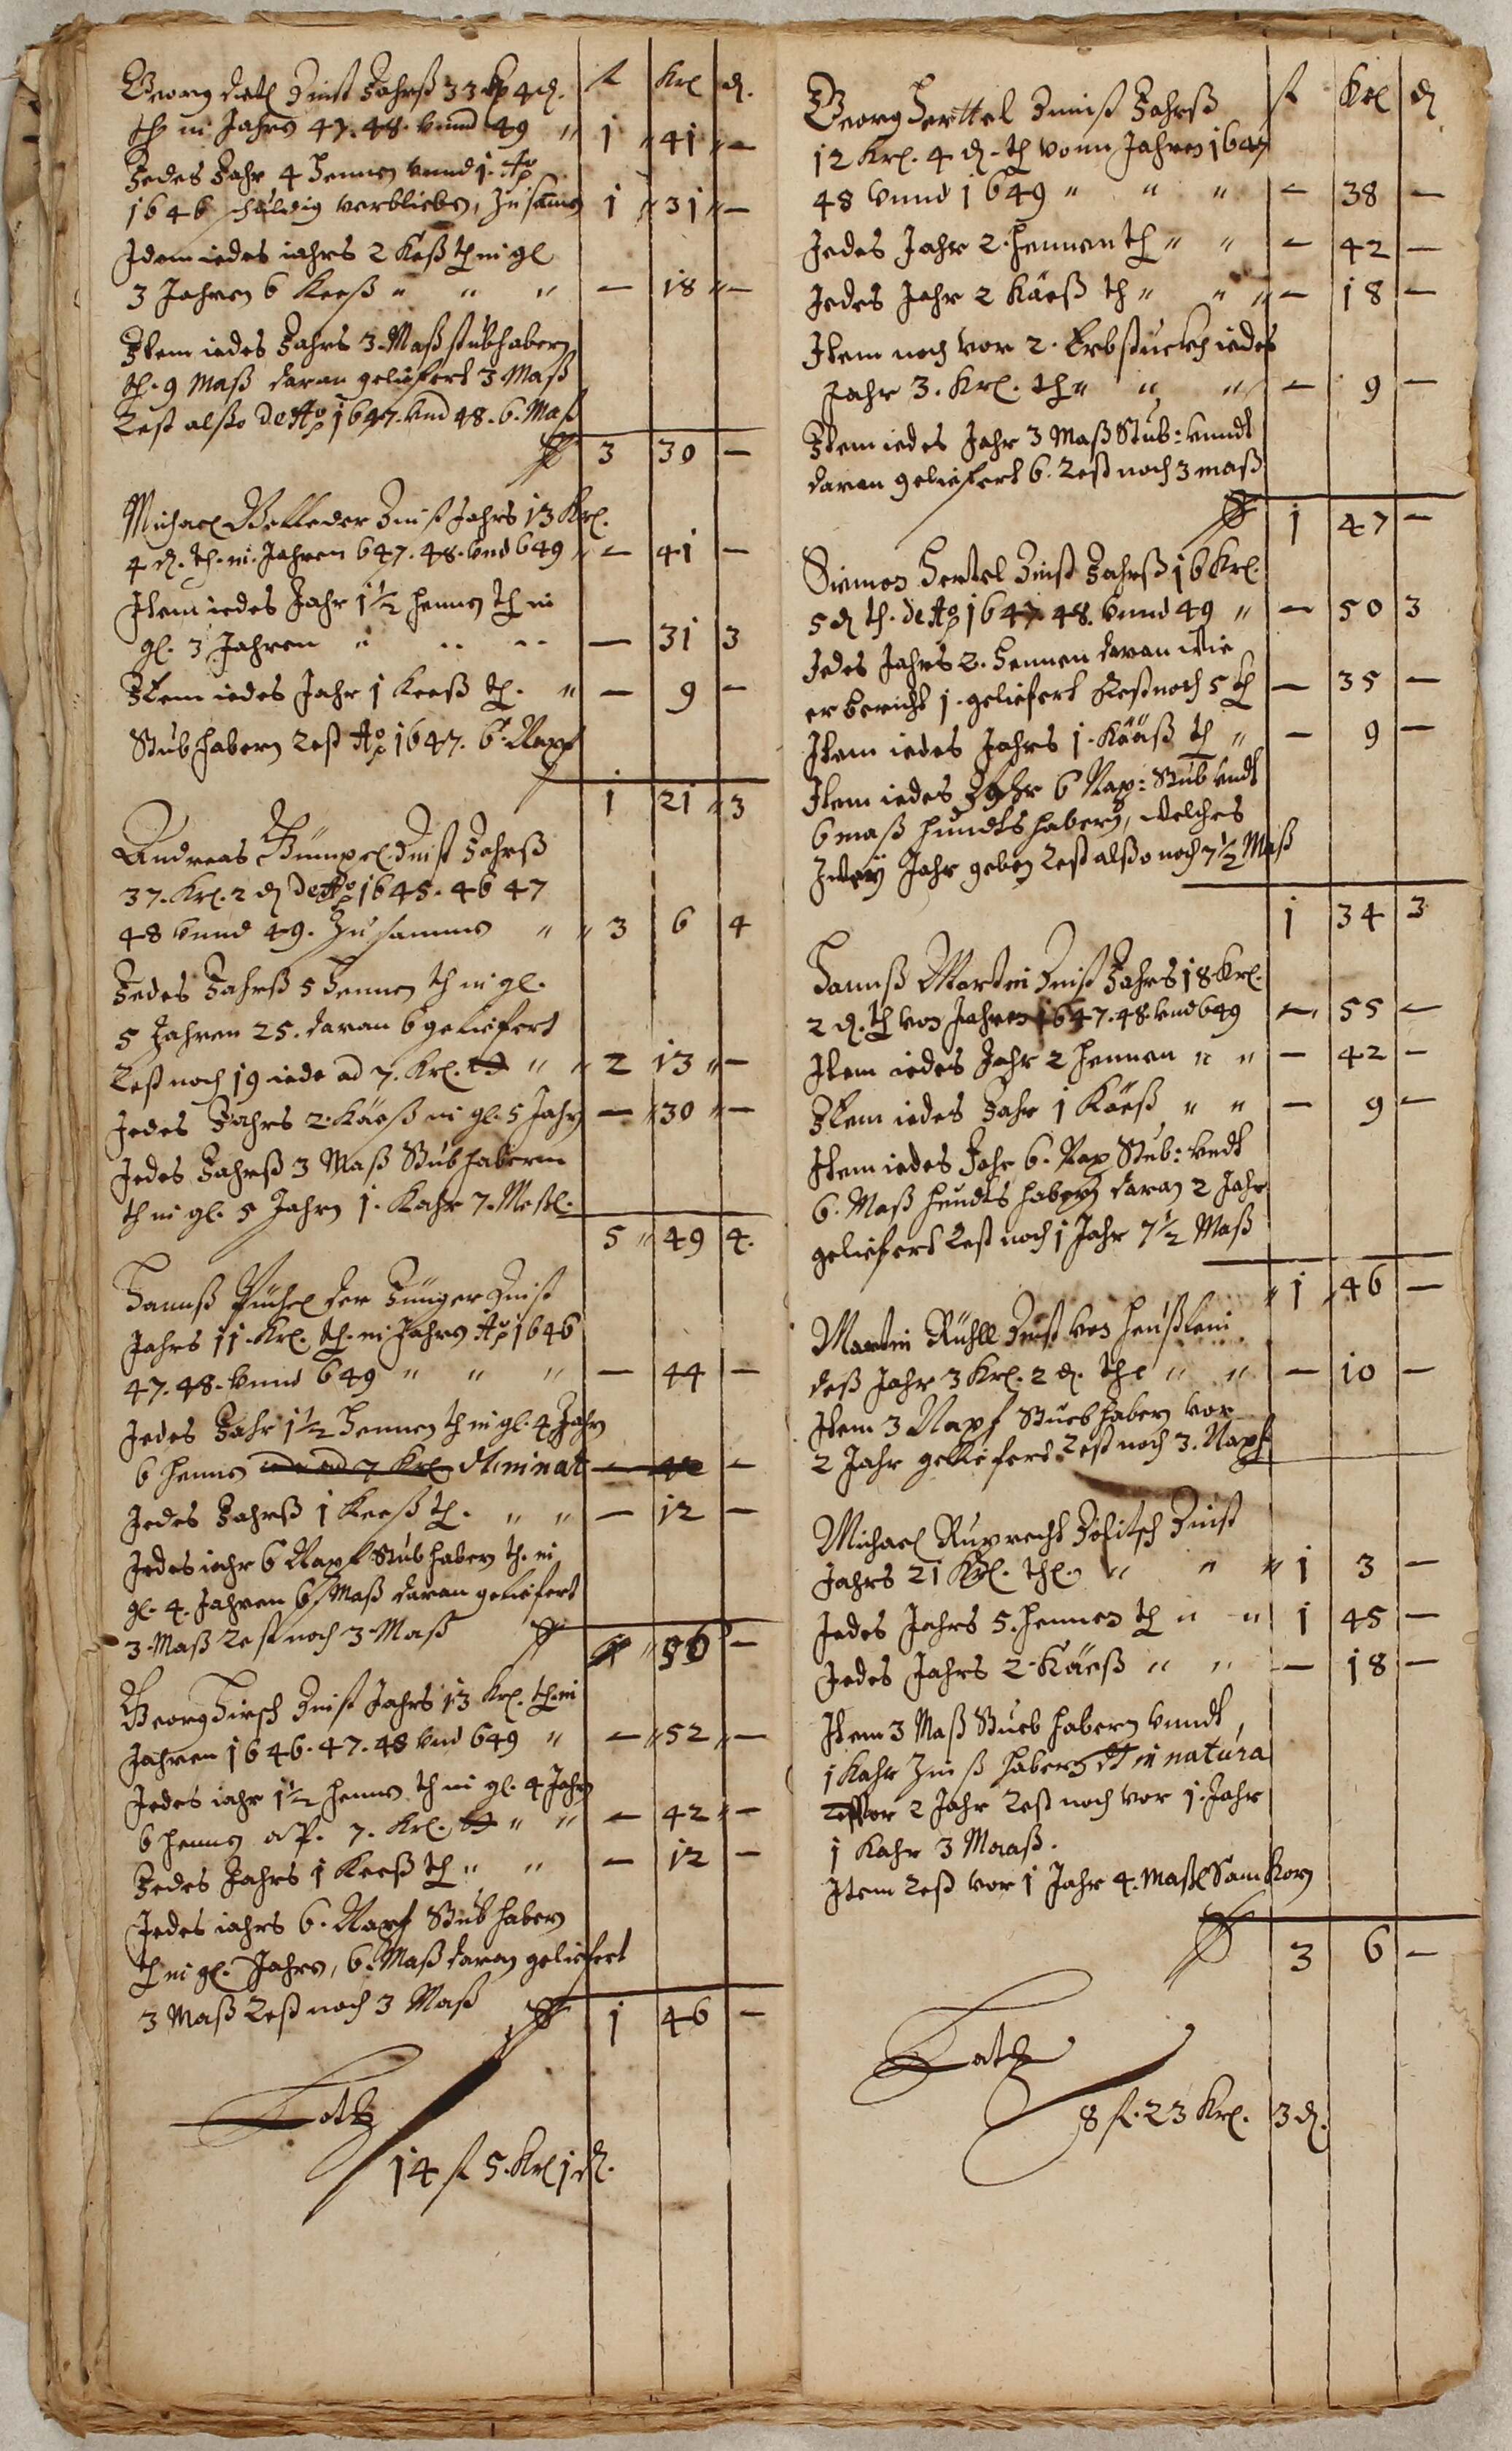 Georg Zinst Jahrß 33 Krl 4 ₰. fl Krl ₰.
in Jahrn 47. 48. vnnd 49 " 1 " 41 " —
Jedes Jahr 4 Hennen vnnd j. Ao
1646 schuldig verblieben, Zusamen 1 " 31 " —
Idem iedes iahrs 2 Keeß th in gl
3 Jahren 6 Keeß " " " — 18 " —
Item iedes Jahrs 3. Maß stubhabern
th. 9 Maß daran geliefert 3 Maß
Rest alßo de Ao 1647. vnd 48. 6. Maß
3 30 —
Michael Zinst Jahrs 13 Krl.
4 ₰. th. in Jahren 647. 48. vnd 649 " — 41 —
Item iedes Jahr 1½ hennen th in
gl. 3 Jahren " " " — 31 3
Item iedes Jahr 1 Keeß th. " — 9 —
Stubhabern Rest Ao 1647. 6. Napf
1 21 " 3
Andreas Gümpel Zinst Jahrß
37. Krl. 2 ₰ de Ao 1645. 46 47
48 vnnd 49. Zusammen " " 3 6 4
Jedes Jahrß 5 Hennen th in gl.
5 Jahren 25. daran 6 geliefert
Rest noch 19 iede ad 7. Krl. " " 2 13 " —
Jedes Jahrs 2. Käeß in gl. 5 Jahrn — " 30 " —
Jedes Jahrß 3 Maß Stubhabern
th in gl. 5 Jahrn 1. Kahr 7. Meßl.
5 " 49 4.
Hannß Püchel der Jünger Zinst
Jahrs 11. Krl. th. in Jahrn Ao 1646
47. 48. vnnd 649 " " " — 44 —
Jedes Jahr 1½ Hennen th in gl. 4 Jahrn
6 hennen iede ad 7 Krl in nat — 42 —
Jedes Jahrß 1 Keeß th. " " — 12 —
Jedes iahr 6 Napf Stubhabern th. in
gl. 4. Jahren 6 Maß daran geliefert
3. Maß Rest noch 3. Maß
" 56 —
Georg Hirsch Zinst Jahrs 13 Krl. th. in
Jahren 1646. 47. 48 vnd 649 " — " 52 " —
Jedes iahr 1½ hennen th in gl. 4 Jahrn
6 hennen a p. 7. Krl. " " — 42 " —
Jedes Jahrs 1 Keeß th " " — 12 —
Jedes iahrs 6. Napf Stubhabern
th in gl. Jahrn, 6. Maß daran geliefert
3 Maß Rest noch 3 Maß
1 46 —
Latg
14 fl 5. Krl 1 ₰.
Georg Herttel Zinnst Jahrß fl Krl ₰
12 Krl. 4 ₰. th vonn Jahren 1647
48 vnnd 1649 " " " — 38 —
Jedes Jahr 2. hennen th " " — 42 —
Jedes Jahr 2 Käeß th " " " — 18 —
Item noch vor 2. Erbstuckh iedes
Jahr 3. Krl. th " " " — 9 —
Item iedes Jahr 3 Maß Stub: vnndt
daran geliefert 6. Rest noch 3 maß
1 47 —
Siemon Hertel Zinst Jahrß 16 Krl.
5 ₰ th. de Ao 1647 48. vnnd 49 " — 50 3
Jedes Jahrs 2. Hennen daran wie
er bericht 1. geliefert Rest noch 5 th — 35 —
Item iedes Jahrs 1. Kääß th " — 9 —
Item iedes Jahr 6 Nap: Stub vndt
6 maß hundtshabern, welches
Zwey Jahr geben Rest alßo noch 7½ Maß
1 34 3
Hannß Martin Zinst Jahrs 18 Krl.
2 ₰. th von Jahren 1647. 48. vnd 649 — 55 —
Item iedes Jahr 2 hennen " " — 42 —
Item iedes Jahr 1 Käeß " " — 9 —
Item iedes Jahr 6. Nap Stub: vndt
6. Maß hundts habern daran 2 Jahr
geliefert Rest noch 1 Jahr 7½ Maß
" 1 " 46 —
Martin Rühll Zinst von heußlein
deß Jahr 3 Krl. 2 ₰. thl " " — 10 —
Item 3 Napf Stueb habern vor
2 Jahr geliefert Rest noch 3. Napf
Michael Ruprecht Zinst
Jahrs 21 Krl. thl. " " " 1 3 —
Jedes Jahrs 5. hennen th " " 1 45 —
Jedes Jahrs 2. Käeß " " — 18 —
Item 3 Maß Stueb habern vnndt
1 Kahr Zinß habern in natura
vor 2 Jahr Rest noch vor 1. Jahr
1 Kahr 3 Maaß.
Item Rest vor 1 Jahr 4. Maßl Sam Korn
3 6 —
Latg
8 fl. 23 Krl. 3 ₰.